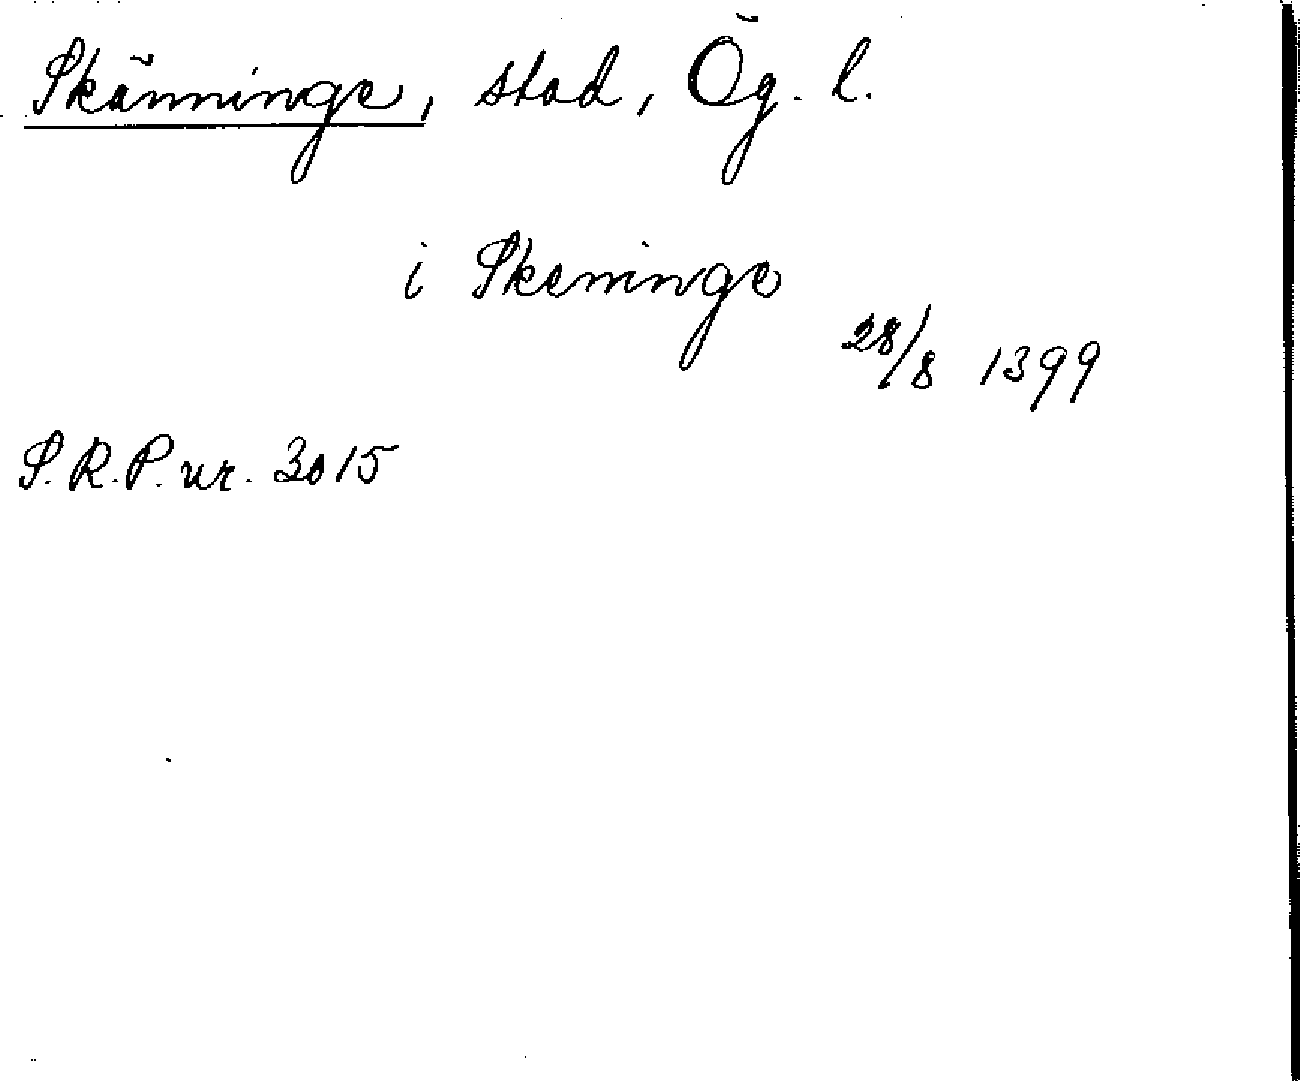 Skänninge, stad, Ög. l.
i Skeninge
28/8 1399
S.R.P. nr. 3015